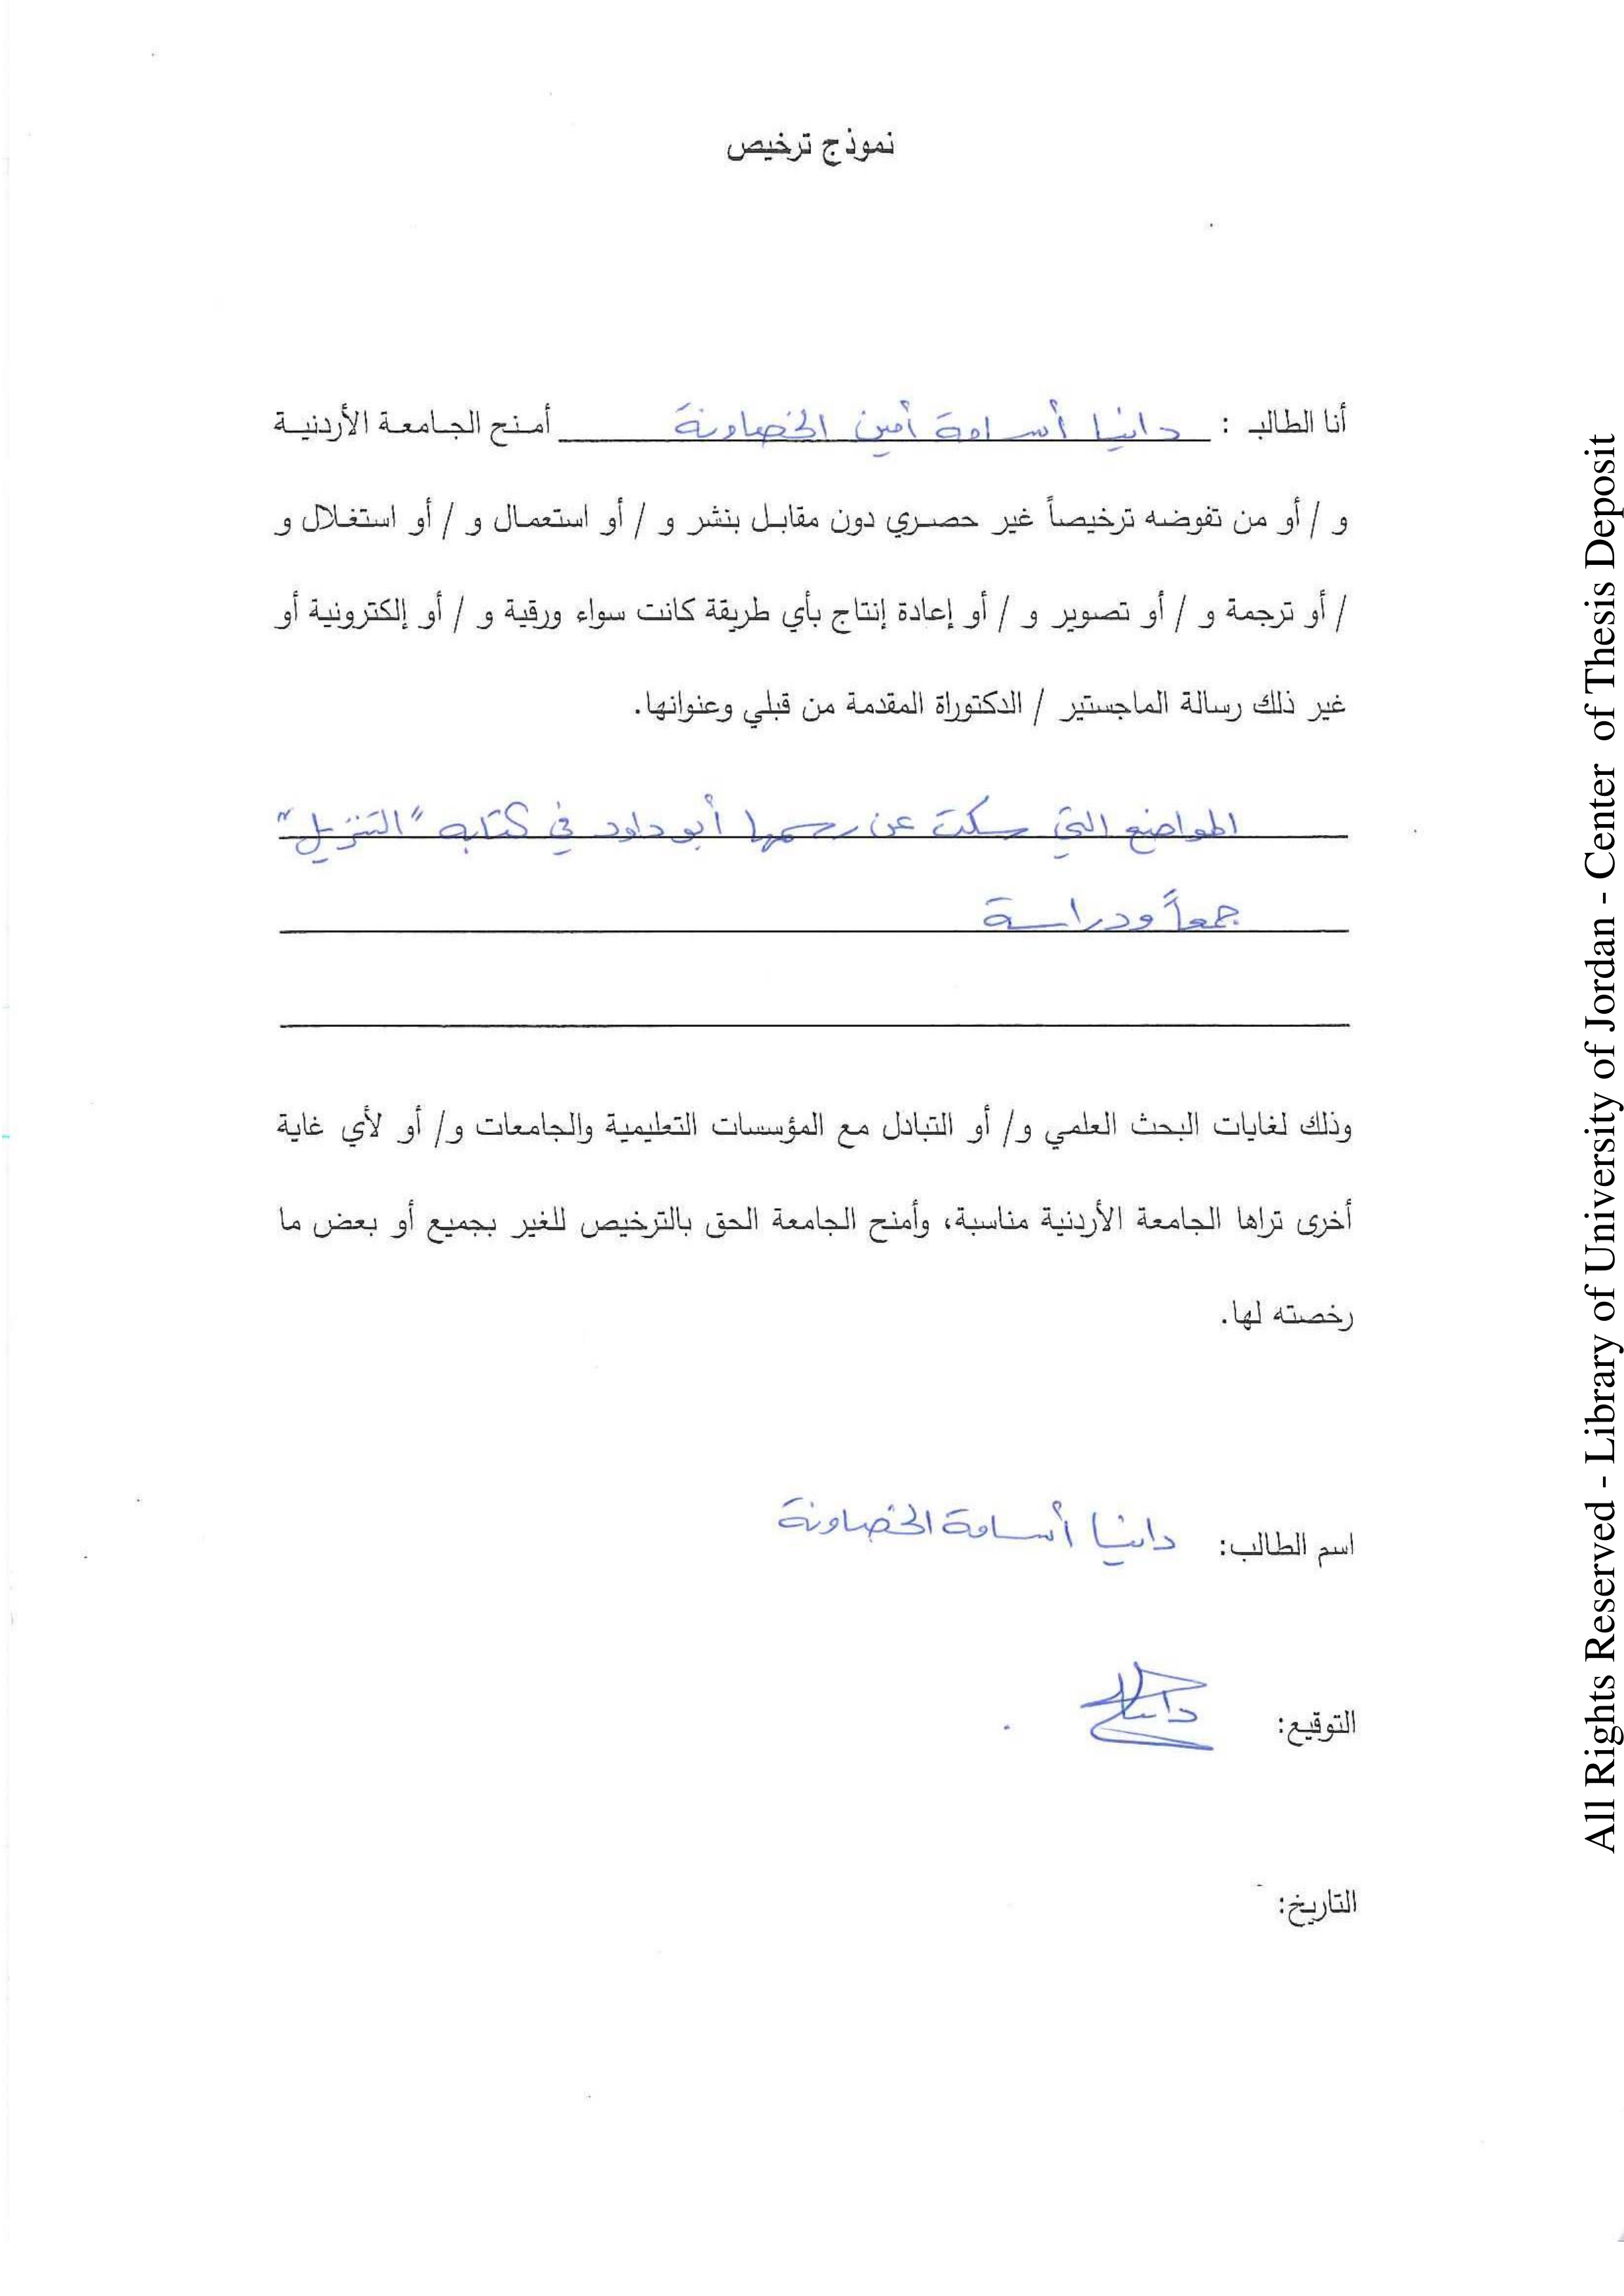 نموذج ترخيص
أنا الطالب : دانيا أسامة أمين الخصاونة أمنح الجامعة الأردنية
و / أو من تفوضه ترخيصاً غير حصري دون مقابل بنشر و / أو استعمال و / أو استغلال و
/ أو ترجمة و / أو تصوير و / أو إعادة إنتاج بأي طريقة كانت سواء ورقية و / أو إلكترونية أو
غير ذلك رسالة الماجستير / الدكتوراة المقدمة من قبلي وعنوانها.
المواضع التي سكت عن رسمها أبو داود في كتابه "التنزيل"
جمعاً ودراسة
وذلك لغايات البحث العلمي و/ أو التبادل مع المؤسسات التعليمية والجامعات و/ أو لأي غاية
أخرى تراها الجامعة الأردنية مناسبة، وأمنح الجامعة الحق بالترخيص للغير بجميع أو بعض ما
رخصته لها.
اسم الطالب: دانيا أسامة الخصاونة
التوقيع:
التاريخ:
All Rights Reserved - Library of University of Jordan - Center of Thesis Deposit